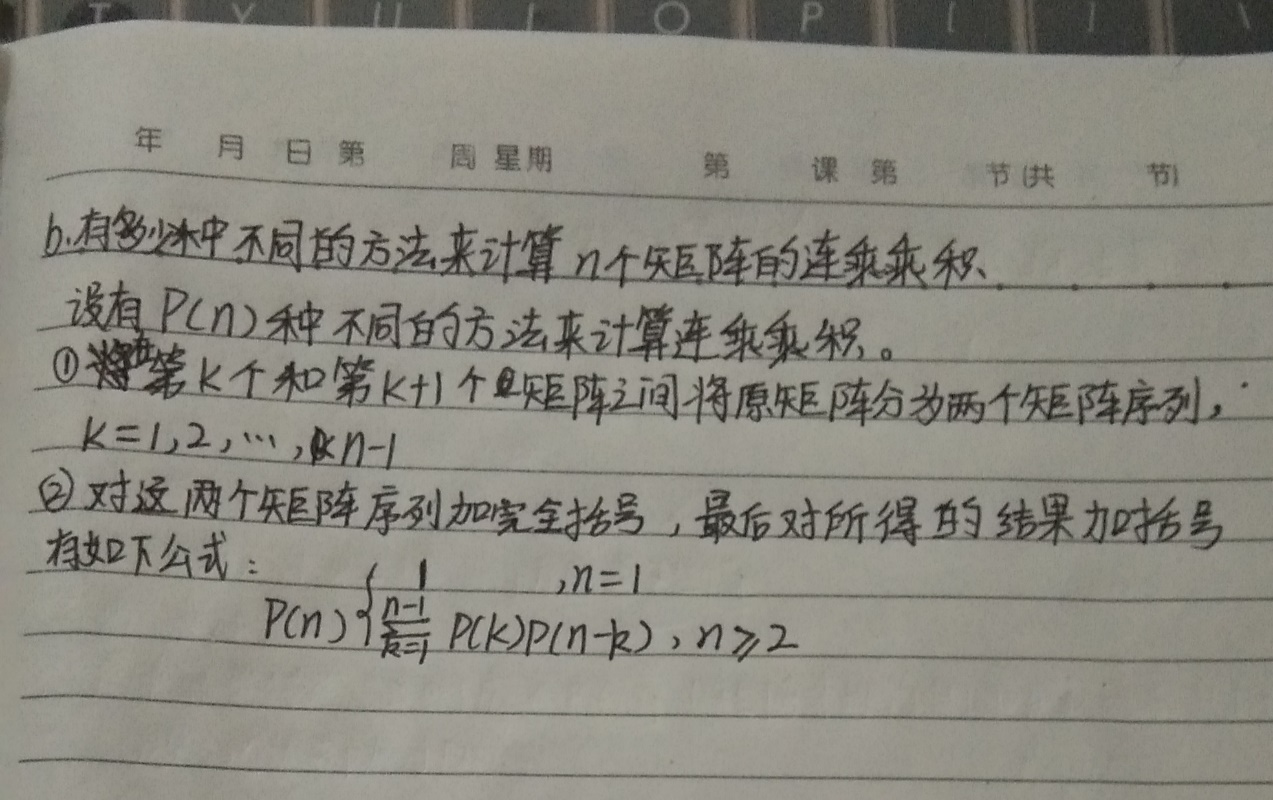 T Y U I O P [ ] \
年 月 日 第 周 星期 第 课 第 节(共 节)
b.有多少种不同的方法来计算n个矩阵的连乘乘积、
设有P(n)种不同的方法来计算连乘乘积。
①在第k个和第k+1个矩阵之间将原矩阵分为两个矩阵序列,
k=1,2,…,n-1
②对这两个矩阵序列加完全括号,最后对所得的结果加括号
有如下公式:
P(n) { 1 ,n=1
∑_{k=1}^{n-1} P(k)P(n-k), n≥2